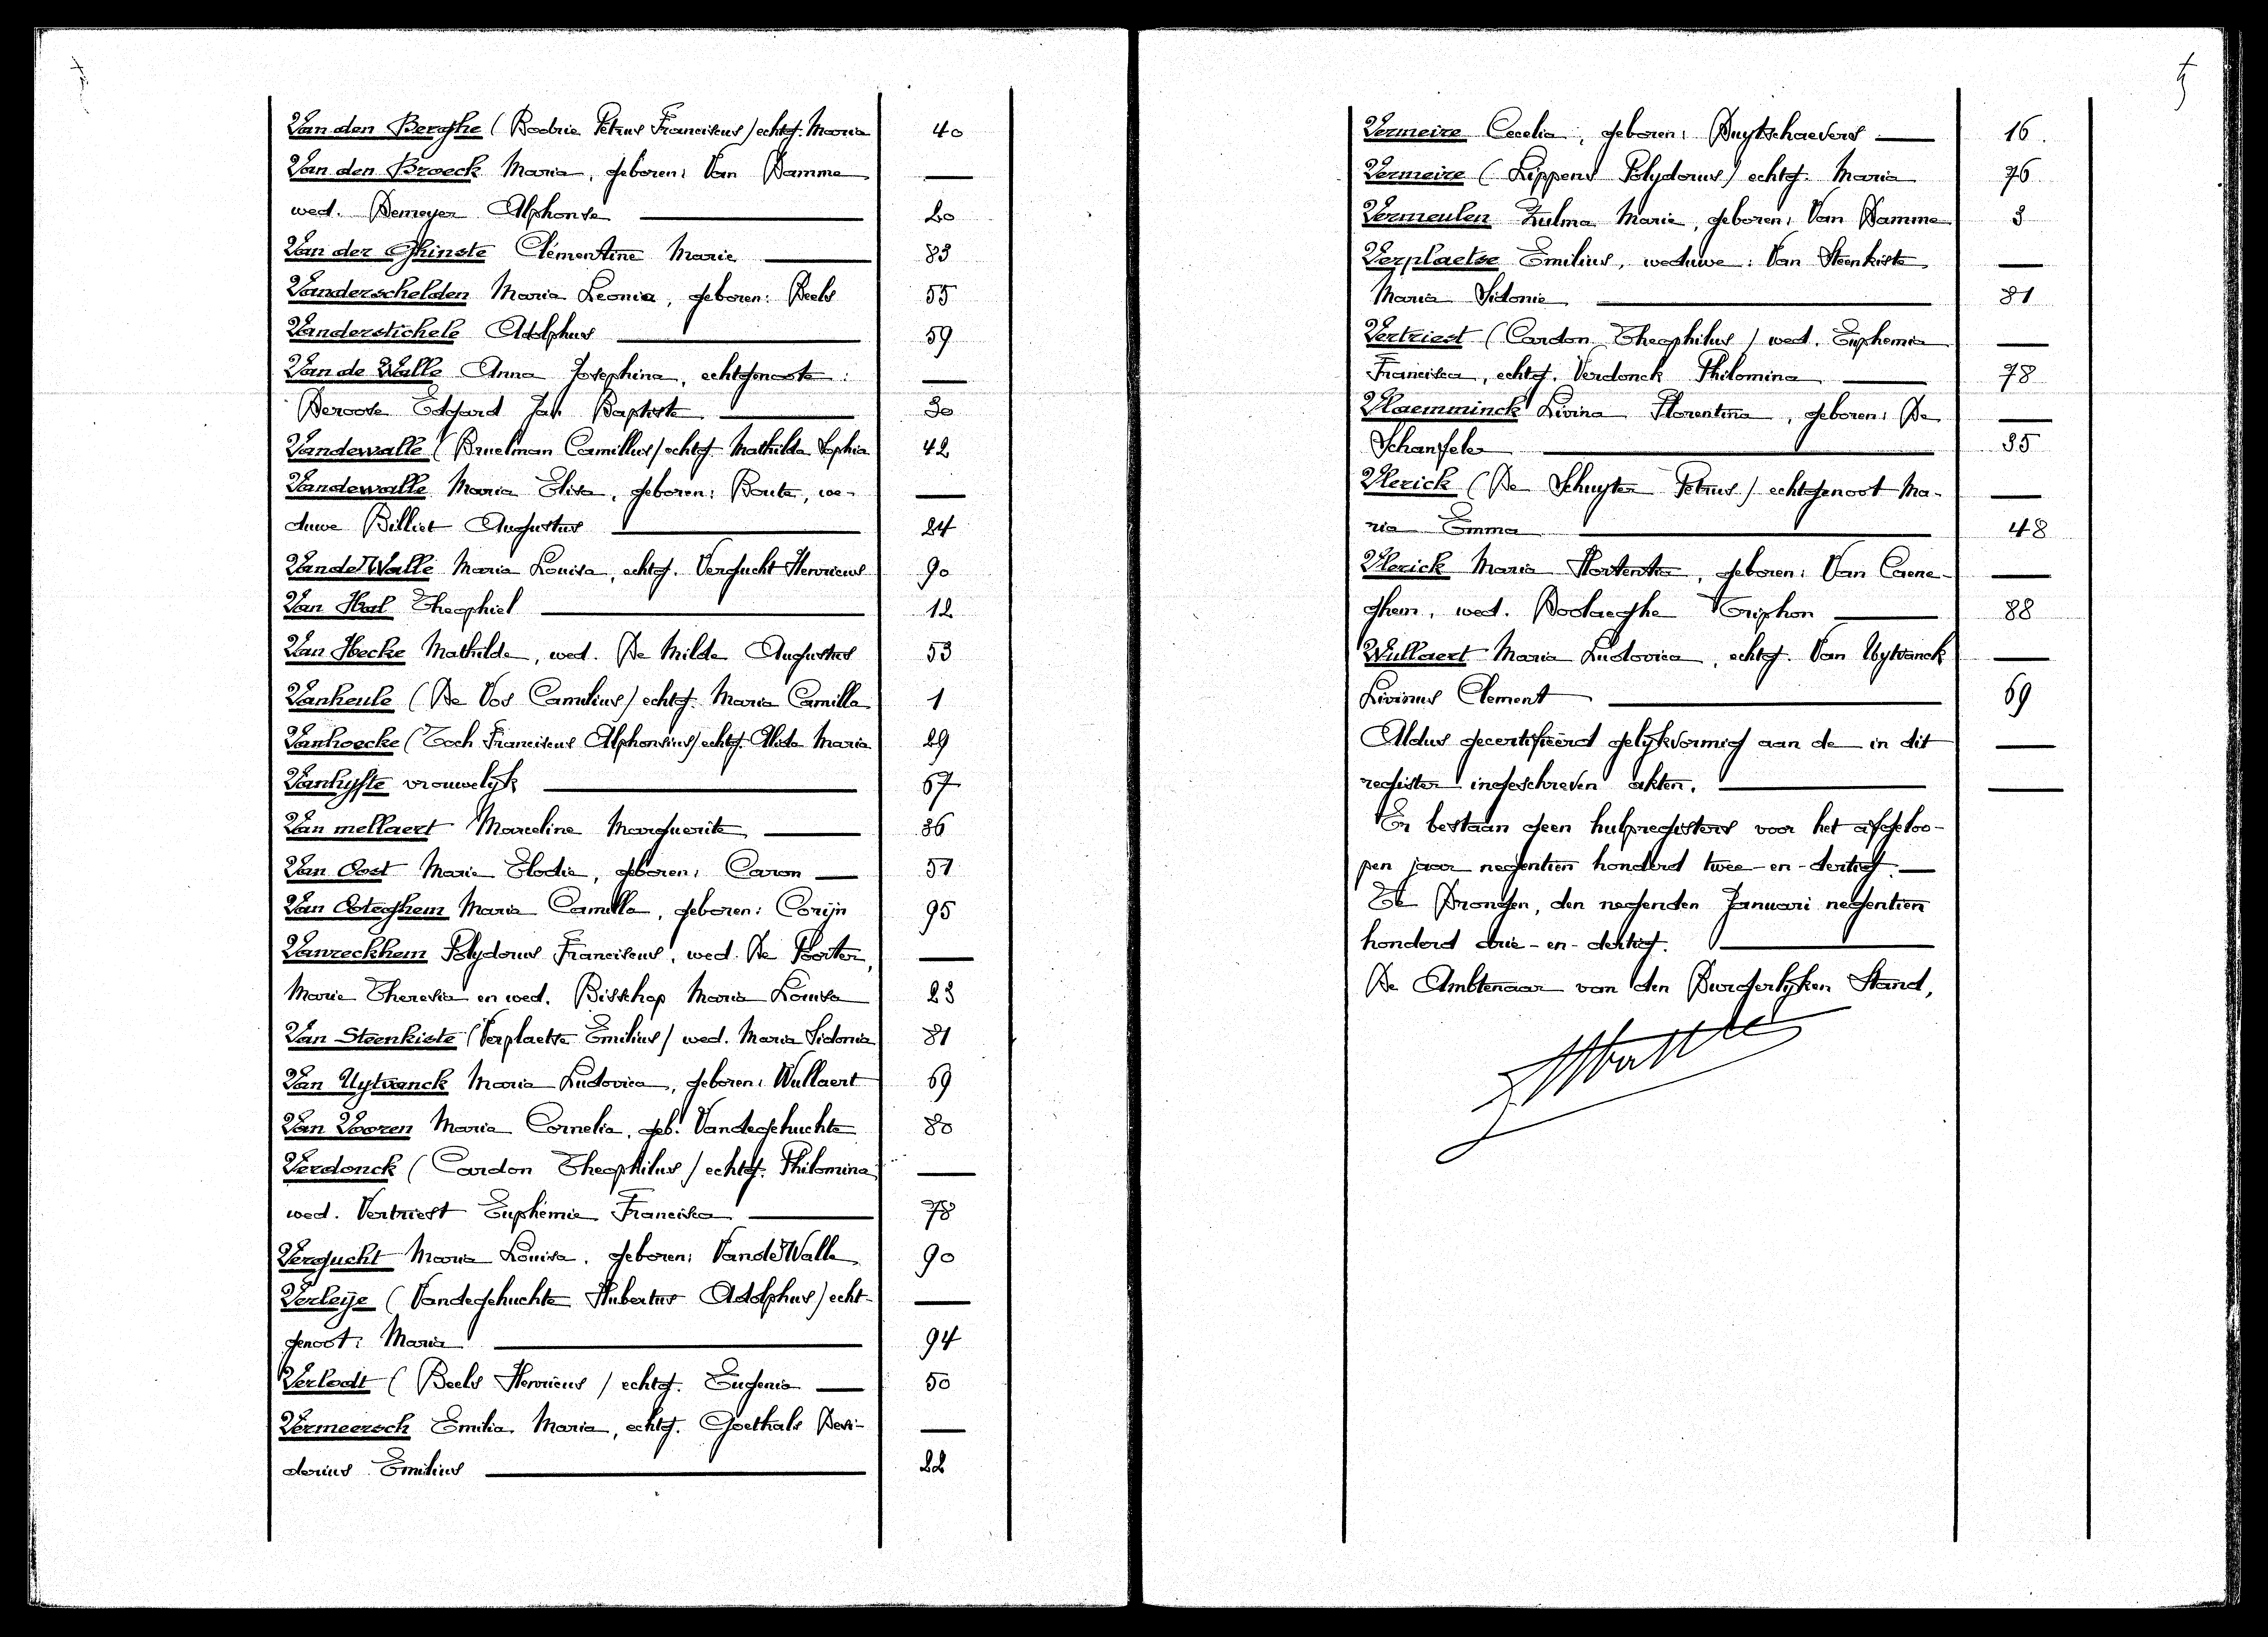 Van den Berghe (Badrie Petrus Franciscus) echtg. Maria 40
Van den Broeck Maria, geboren: Van Damme —
wed. Demeyer Alphonse — 20
Van der Ghinste Clémentine Marie — 83
Vanderschelden Maria Leonia, geboren: Beels 55
Vanderstichele Adolphus — 59
Van de Walle Anna Josephina, echtgenoote: —
Deroose Edgard Jan Baptiste — 30
Vandewalle (Bruelman Camillus) echtg. Mathilda Sophia 42
Vandewalle Maria Elisa, geboren: Boute, we- —
duwe Billiet Augustus — 24
Van de Walle Maria Louisa, echtg. Vergucht Henricus 90
Van Hal Theophiel — 12
Van Hecke Mathilde, wed. De Milde Augustus 53
Vanheule (De Vos Camilius) echtg. Maria Camilla 1
Vanhoecke (Toch Franciscus Alphonsius) echtg. Alida Maria 29
Vanhyfte vrouwelijk — 67
Van mellaert Marceline Marguerite — 36
Van Oost Marie Elodie, geboren: Caron — 51
Van Oteghem Maria Camilla, geboren: Corijn 95
Vanreckhem Polydorus Franciscus, wed. De Poorter, —
Marie Theresia en wed. Bisschop Maria Louisa 23
Van Steenkiste (Verplaetse Emilius) wed. Maria Sidonia 81
Van Uytvanck Maria Ludovica, geboren: Wullaert 69
Van Vooren Maria Cornelia, geb. Vandegehuchte 80
Verdonck (Cardon Theophilus) echtg. Philomina —
wed. Vertriest Euphemie Francisca — 78
Vergucht Maria Louisa, geboren: Van de Walle 90
Verleije (Vandegehuchte Hubertus Adolphus) echt- —
genoot: Maria — 94
Verlodt (Beels Henricus) echtg. Eugenia — 50
Vermeersch Emilia Maria, echtg. Goethals Desi- —
derius Emilius — 22
Vermeire Cecelia, geboren: Buytschaevers — 16.
Vermeire (Lippens Polydorus) echtg. Maria 76
Vermeulen Zulma Marie, geboren: Van Damme 3
Verplaetse Emilius, weduwe: Van Steenkiste —
Maria Sidonie — 81
Vertriest (Cardon Theophilus) wed. Euphemia —
Francisca, echtg. Verdonck Philomina — 78
Vlaemminck Livina Florentina, geboren: De —
Schampfele — 35
Vlerick (De Schuyter Petrus) echtgenoot Ma- —
ria Emma — 48
Vlerick Maria Hortentia, geboren: Van Caene- —
ghem, wed. Boolaeghe Triphon — 88
Wullaert Maria Ludovica, echtg. Van Uytvanck —
Livinus Clement — 69
Aldus gecertifieerd gelijkvormig aan de in dit —
register ingeschreven akten. —
Er bestaan geen hulpregisters voor het afgeloo-
pen jaar negentien honderd twee-en-dertig. —
Te Drongen, den negenden Januari negentien
honderd drie-en-dertig. —
De Ambtenaar van den Burgerlijken Stand,